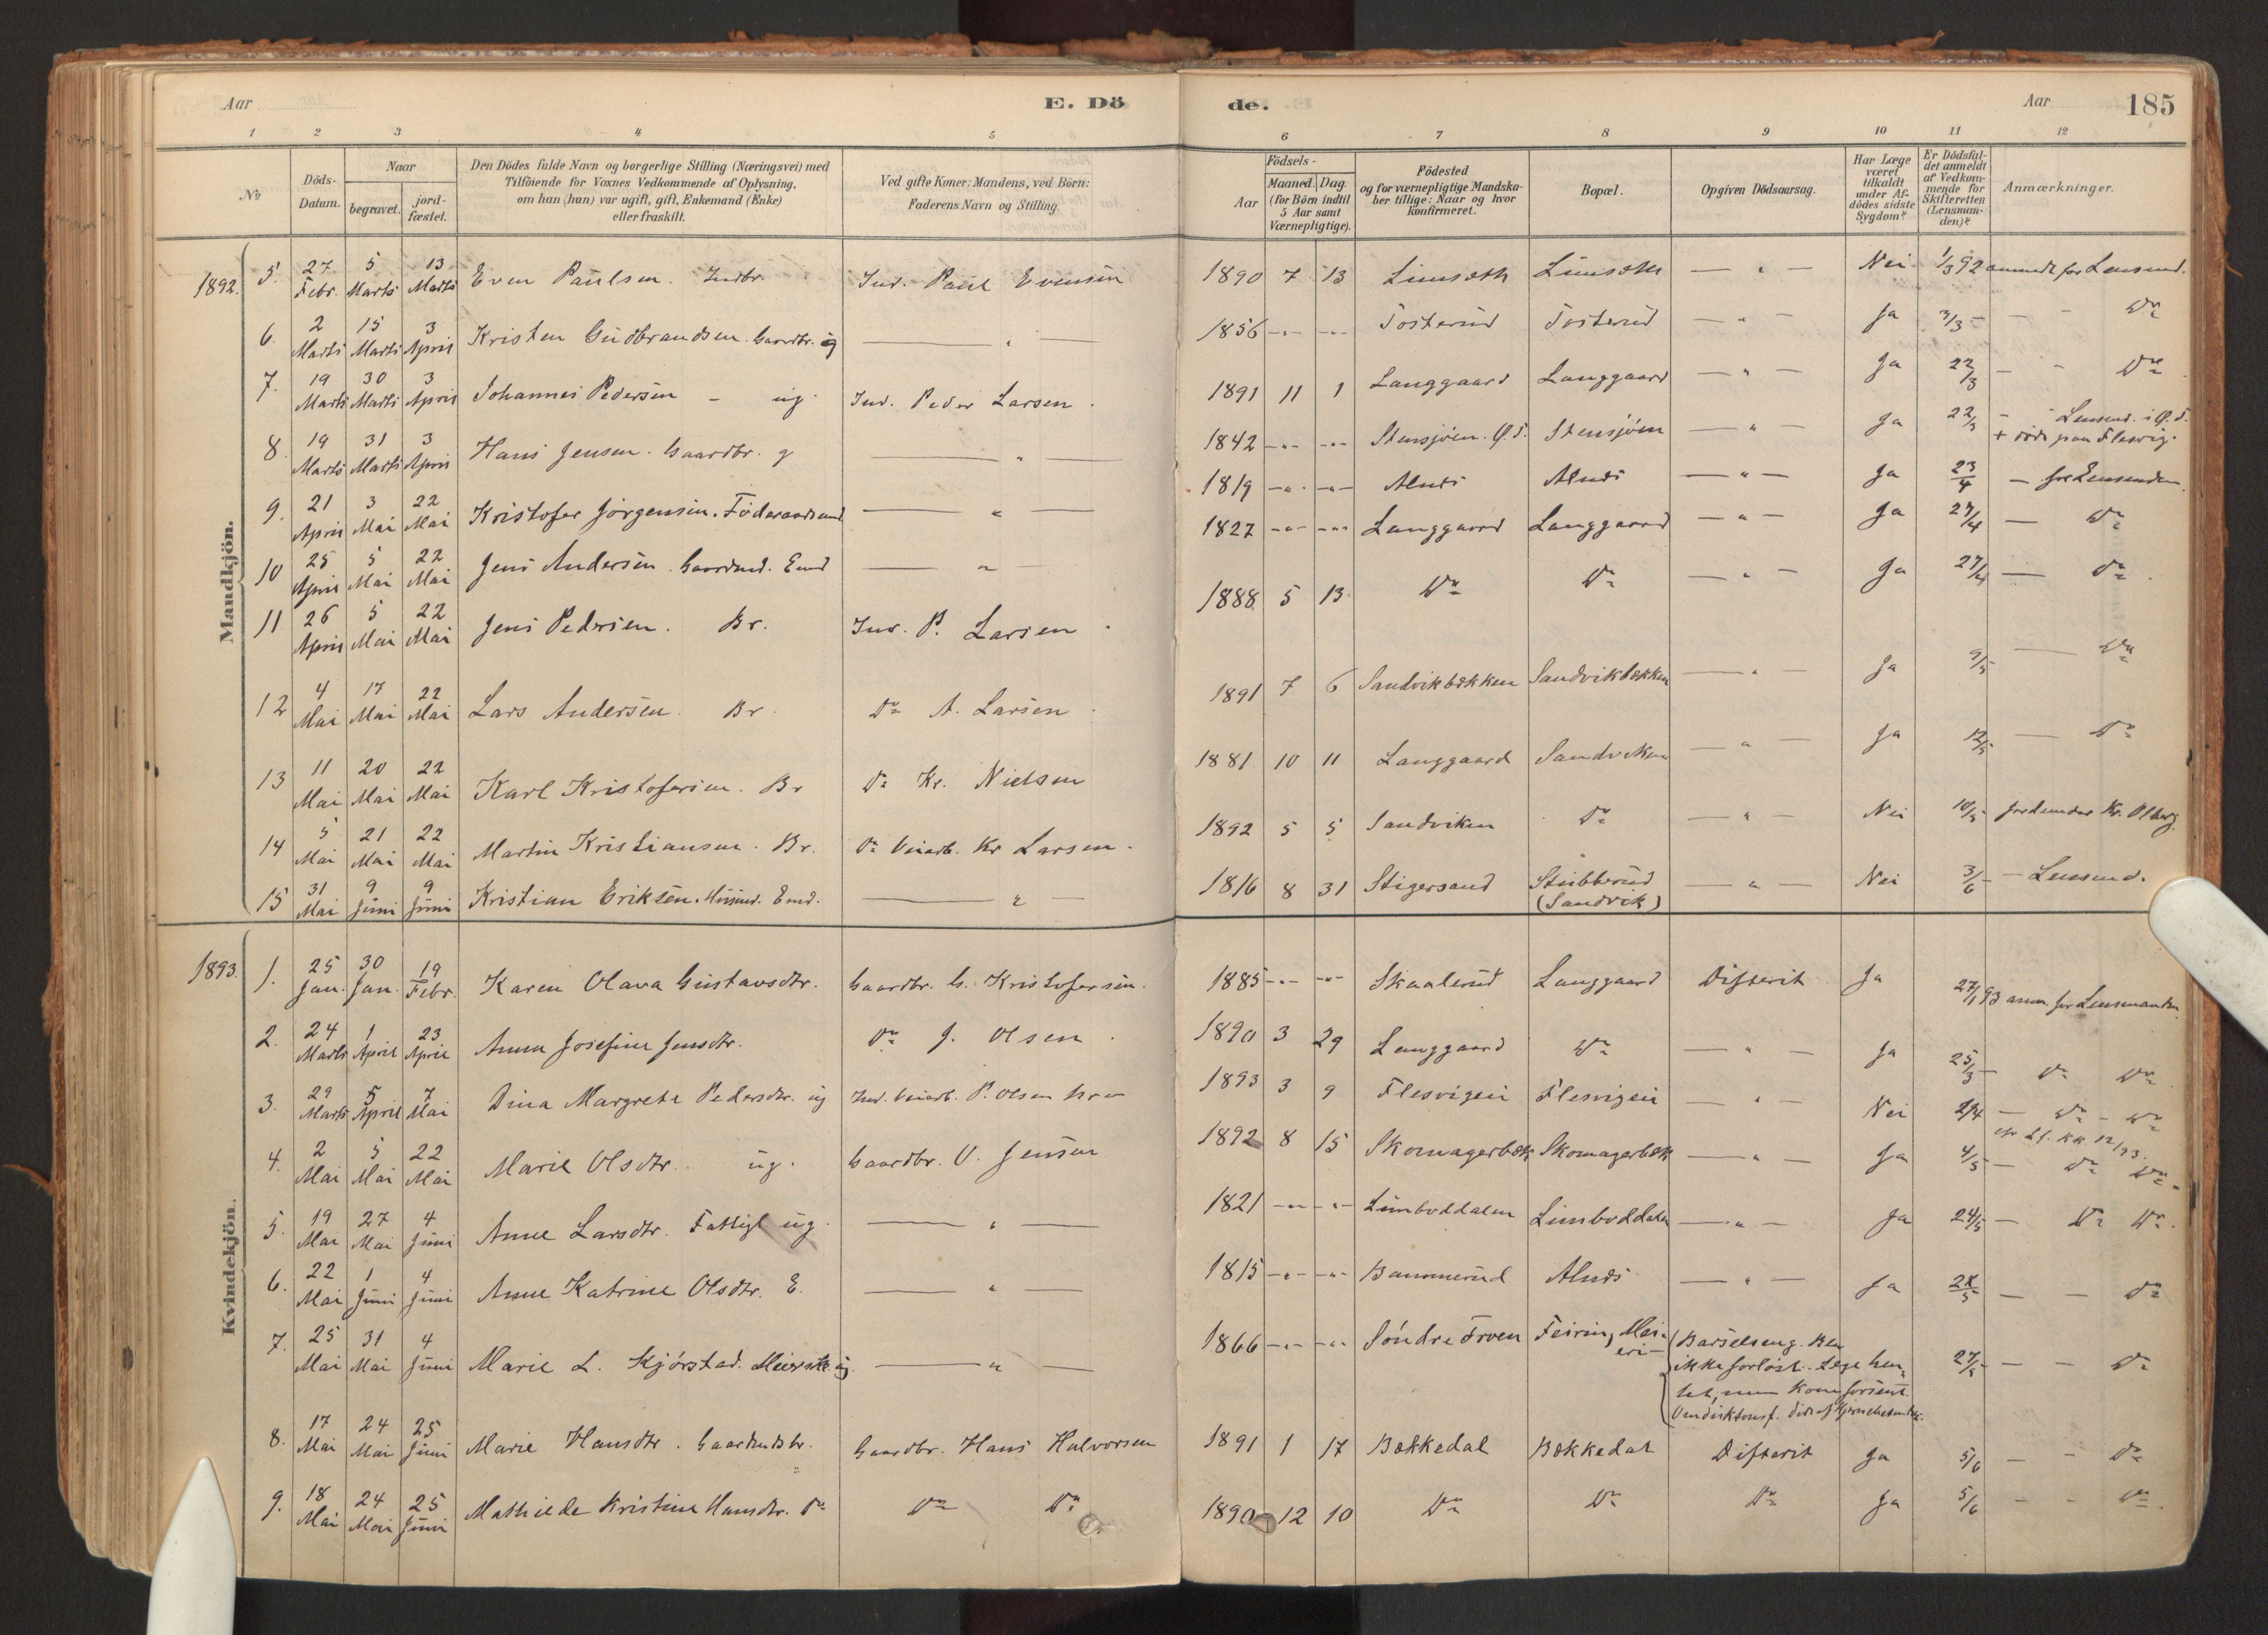 Aar E. Dö de. Aar 185
1 2 3 4 5 6 7 8 9 10 11 12
No
Döds-Datum.
Naar
begravet. jordfæstet.
Den Dödes fulde Navn og borgerlige Stilling (Næringsvei) med
Tilföiende for Voxnes Vedkommende af Oplysning,
om han (hun) var ugift, gift, Enkemand (Enke)
eller fraskilt.
Ved gifte Koner: Mandens, ved Börn:
Faderens Navn og Stilling.
Födsels-
Aar Maaned. Dag.
(for Börn indtil
5 Aar samt
Værnepligtige).
Födested
og for værnepligtige Mandska-
ber tillige: Naar og hvor
konfirmeret.
Bopæl.
Opgiven Dödsaarsag.
Har Læge
været
tilkaldt
under Af-
dödes sidste
Sygdom?
Er Dödsfal-
det anmeldt
af Vedkom-
mende for
Skifteretten
(Lensman-
den)?
Anmærkninger.
Mandkjön.
1892. 5. 27 Febr. 5 Marts 13 Marts Even Paulsen. Indbr. Ind. Paul Evensen 1890 7 13 Limsæth Limsæth — " — Nei 1/3 92 anmeldt for Lensmd.
6. 2 Marts 15 Marts 3 April Kristen Gudbrandsen. Gaardbr. g — " — 1856 -"- -"- Tosterud Tosterud — " — Ja 3/3 - - - Do
7. 19 Marts 30 Marts 3 April Johannes Pedersen - ug. Ind. Peder Larsen. 1891 11 1 Langgaard Langgaard — " — Ja 22/3 - - Do
8. 19 Marts 31 Marts 3 April Hans Jensen. Gaardbr. g — " — 1842 -"- -"- Stensjöen. Ö.T. Stensjöen — " — Ja 22/3 - - Lensmd. i Ö.T.
+ döde paa Flesvig.
9. 21 April 3 Mai 22 Mai Kristofer Jörgensen. Föderaadsmd — " — 1819 -"- -"- Alnæs Alnæs — " — Ja 23/4 — for Lensmden
10 25 April 5 Mai 22 Mai Jens Andersen. Gaardmd. Emd — " — 1827 -"- -"- Langgaard Langgaard — " — Ja 27/4 — Do
11 26 April 5 Mai 22 Mai Jens Pedersen. Br. Ind. P. Larsen. 1888 5 13 Do Do — " — Ja 27/4 — Do
12 4 Mai 17 Mai 22 Mai Lars Andersen. Br. Do A. Larsen. 1891 7 6 Sandvikbækken Sandvikbækken — " — Ja 9/5 — Do
13 11 Mai 20 Mai 22 Mai Karl Kristofersen. Br Do Kr. Nielsen 1881 10 11 Langgaard Sandviken — " — Ja 12/5 — Do
14 5 Mai 21 Mai 22 Mai Martin Kristiansen. Br. Do Veiarb. Kr Larsen. 1892 5 5 Sandviken Do — " — Nei 10/5 - for Kr. Olberg.
15 31 Mai 9 Juni 9 Juni Kristian Eriksen. Husmd. Emd. — " — 1816 8 31 Stigersand Stubberud
(Sandvik) — " — Nei 3/6 - - Lensmd.
Kvindekjön.
1893. 1. 25 Jan. 30 Jan. 19 Febr. Karen Olava Gustavsdtr. Gaardbr. G. Kristofersen. 1885 -"- -"- Skaalerud Langgaard Difterit Ja 27/1 93 anm. for Lensmanden
2. 24 Marts 1 April 23 April Anna Josefine Jensdtr. Do J. Olsen. 1890 3 29 Langgaard Do — " — Ja 25/3 - Do Do
3. 29 Marts 5 April 7 Mai Dina Margrete Pedersdtr. ug Ind. Veiarb. P. Olsen 1893 3 9 Flesvigen Flesvigen — " — Nei 2/4 — Do - Do
4. 2 Mai 5 Mai 22 Mai Marie Olsdtr. ug. Gaardbr. O. Jensen 1892 8 15 Skomagerbæk Skomagerbæk — " — Ja 4/5 - Do Do
5. 19 Mai 27 Mai 4 Juni Anne Larsdtr. Fattigl ug. — " — 1821 -"- -"- Limboddalen Limboddalen — " — Ja 24/5 - Do Do.
6. 22 Mai 1 Juni 4 Juni Anne Katrine Olsdtr. E. — " — 1815 -"- -"- Bammerud Alnæs — " — Ja 28/5 — — Do
7. 25 Mai 31 Mai 4 Juni Marie L. Kjörstad. Meierske. ug — " — 1866 -"- -"- Söndre Froen Feirin, Mei-
eri- Barselseng. Blev
ikke forlöst. Læge hen-
tet, men kom forsent. 27/5 — — Do
8. 17 Mai 24 Mai 25 Juni Marie Hansdtr. Gaardmdsbr. Gaardbr. Hans Halvorsen 1891 1 17 Bækkedal Bækkedal Difterit Ja 5/6 - - Do
9. 18 Mai 24 Mai 25 Juni Mathilde Kristine Hansdtr. Do Do Do 1890 12 10 Do Do Do Ja 5/6 - - Do